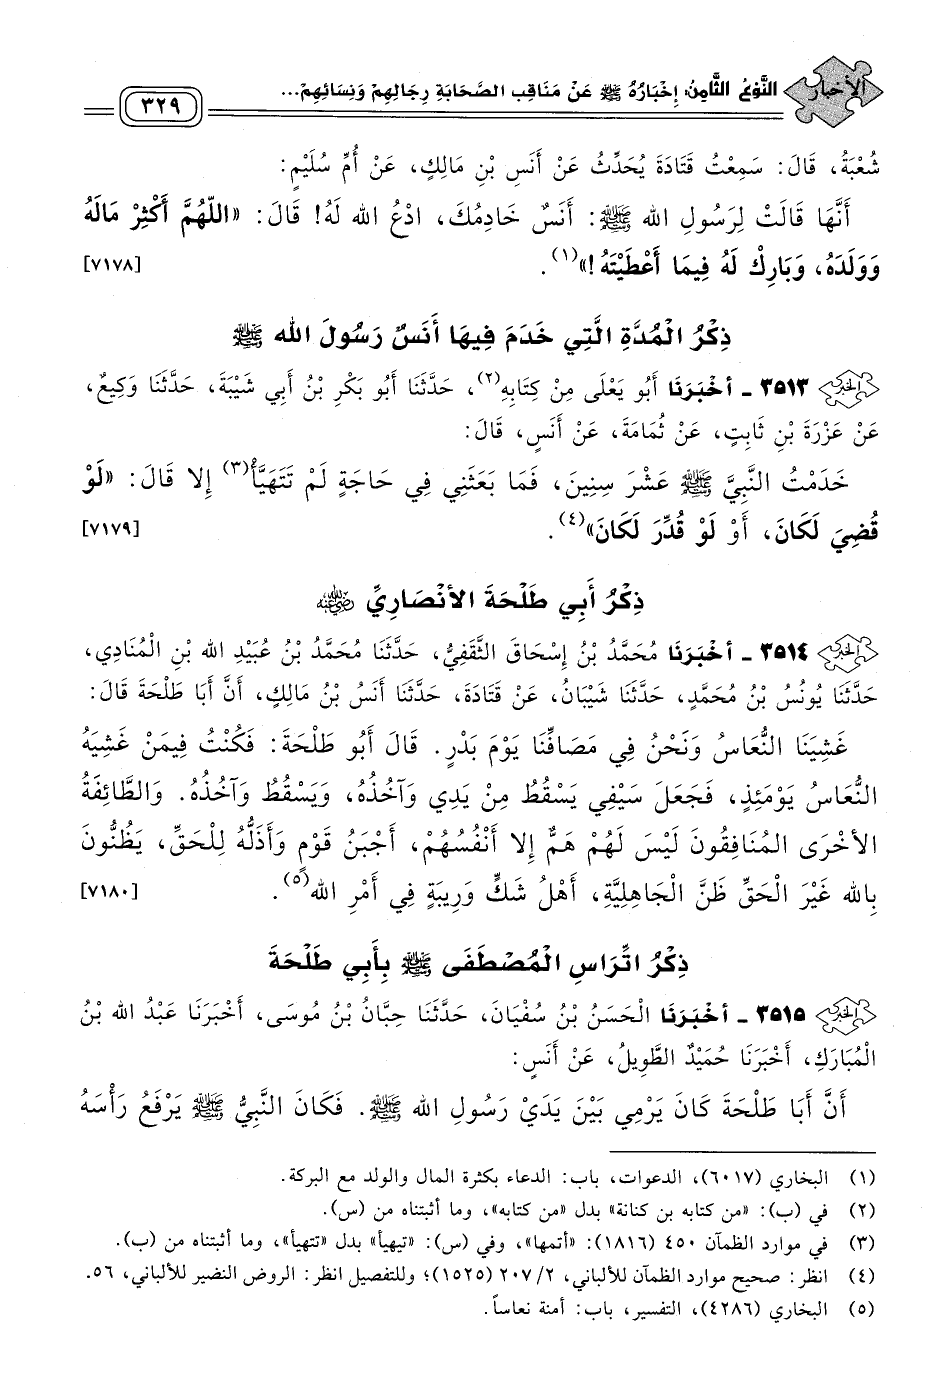 الأخبار
النَّوْعُ الثَّامِنُ: إِخْبَارُهُ ﷺ عَنْ مَنَاقِبِ الصَّحَابَةِ رِجَالِهِمْ وَنِسَائِهِمْ...
٣٢٩
شُعْبَةُ، قَالَ: سَمِعْتُ قَتَادَةَ يُحَدِّثُ عَنْ أَنَسِ بْنِ مَالِكٍ، عَنْ أُمِّ سُلَيْمٍ:
أَنَّهَا قَالَتْ لِرَسُولِ الله ﷺ: أَنَسٌ خَادِمُكَ، ادْعُ الله لَهُ! قَالَ: «اللّهُمَّ أَكْثِرْ مَالَهُ
وَوَلَدَهُ، وَبَارِكْ لَهُ فِيمَا أَعْطَيْتَهُ!»(١). [٧١٧٨]
ذِكْرُ الْمُدَّةِ الَّتِي خَدَمَ فِيهَا أَنَسٌ رَسُولَ الله ﷺ
الخبر ٣٥١٣ ـ أَخْبَرَنَا أَبُو يَعْلَى مِنْ كِتَابِهِ(٢)، حَدَّثَنَا أَبُو بَكْرِ بْنُ أَبِي شَيْبَةَ، حَدَّثَنَا وَكِيعٌ،
عَنْ عَزْرَةَ بْنِ ثَابِتٍ، عَنْ ثُمَامَةَ، عَنْ أَنَسٍ، قَالَ:
خَدَمْتُ النَّبِيَّ ﷺ عَشْرَ سِنِينَ، فَمَا بَعَثَنِي فِي حَاجَةٍ لَمْ تَتَهَيَّأْ(٣) إِلا قَالَ: «لَوْ
قُضِيَ لَكَانَ، أَوْ لَوْ قُدِّرَ لَكَانَ»(٤). [٧١٧٩]
ذِكْرُ أَبِي طَلْحَةَ الأَنْصَارِيِّ رضي الله عنه
الخبر ٣٥١٤ ـ أَخْبَرَنَا مُحَمَّدُ بْنُ إِسْحَاقَ الثَّقَفِيُّ، حَدَّثَنَا مُحَمَّدُ بْنُ عُبَيْدِ الله بْنِ الْمُنَادِي،
حَدَّثَنَا يُونُسُ بْنُ مُحَمَّدٍ، حَدَّثَنَا شَيْبَانُ، عَنْ قَتَادَةَ، حَدَّثَنَا أَنَسُ بْنُ مَالِكٍ، أَنَّ أَبَا طَلْحَةَ قَالَ:
غَشِيَنَا النُّعَاسُ وَنَحْنُ فِي مَصَافِّنَا يَوْمَ بَدْرٍ. قَالَ أَبُو طَلْحَةَ: فَكُنْتُ فِيمَنْ غَشِيَهُ
النُّعَاسُ يَوْمَئِذٍ، فَجَعَلَ سَيْفِي يَسْقُطُ مِنْ يَدِي وَآخُذُهُ، وَيَسْقُطُ وَآخُذُهُ. وَالطَّائِفَةُ
الأُخْرَى الْمُنَافِقُونَ لَيْسَ لَهُمْ هَمٌّ إِلا أَنْفُسُهُمْ، أَجْبَنُ قَوْمٍ وَأَذَلُّهُ لِلْحَقِّ، يَظُنُّونَ
بِالله غَيْرَ الْحَقِّ ظَنَّ الْجَاهِلِيَّةِ، أَهْلُ شَكٍّ وَرِيبَةٍ فِي أَمْرِ الله(٥). [٧١٨٠]
ذِكْرُ اتِّرَاسِ الْمُصْطَفَى ﷺ بِأَبِي طَلْحَةَ
الخبر ٣٥١٥ ـ أَخْبَرَنَا الْحَسَنُ بْنُ سُفْيَانَ، حَدَّثَنَا حِبَّانُ بْنُ مُوسَى، أَخْبَرَنَا عَبْدُ الله بْنُ
الْمُبَارَكِ، أَخْبَرَنَا حُمَيْدٌ الطَّوِيلُ، عَنْ أَنَسٍ:
أَنَّ أَبَا طَلْحَةَ كَانَ يَرْمِي بَيْنَ يَدَيْ رَسُولِ الله ﷺ. فَكَانَ النَّبِيُّ ﷺ يَرْفَعُ رَأْسَهُ
(١) البخاري (٦٠١٧)، الدعوات، باب: الدعاء بكثرة المال والولد مع البركة.
(٢) في (ب): «من كتابه بن كنانة» بدل «من كتابه»، وما أثبتناه من (س).
(٣) في موارد الظمآن ٤٥٠ (١٨١٦): «أتمها»، وفي (س): «تيهيأ» بدل «تتهيأ»، وما أثبتناه من (ب).
(٤) انظر: صحيح موارد الظمآن للألباني، ٢/ ٢٠٧ (١٥٢٥)؛ وللتفصيل انظر: الروض النضير للألباني، ٥٦.
(٥) البخاري (٤٢٨٦)، التفسير، باب: أمنة نعاساً.